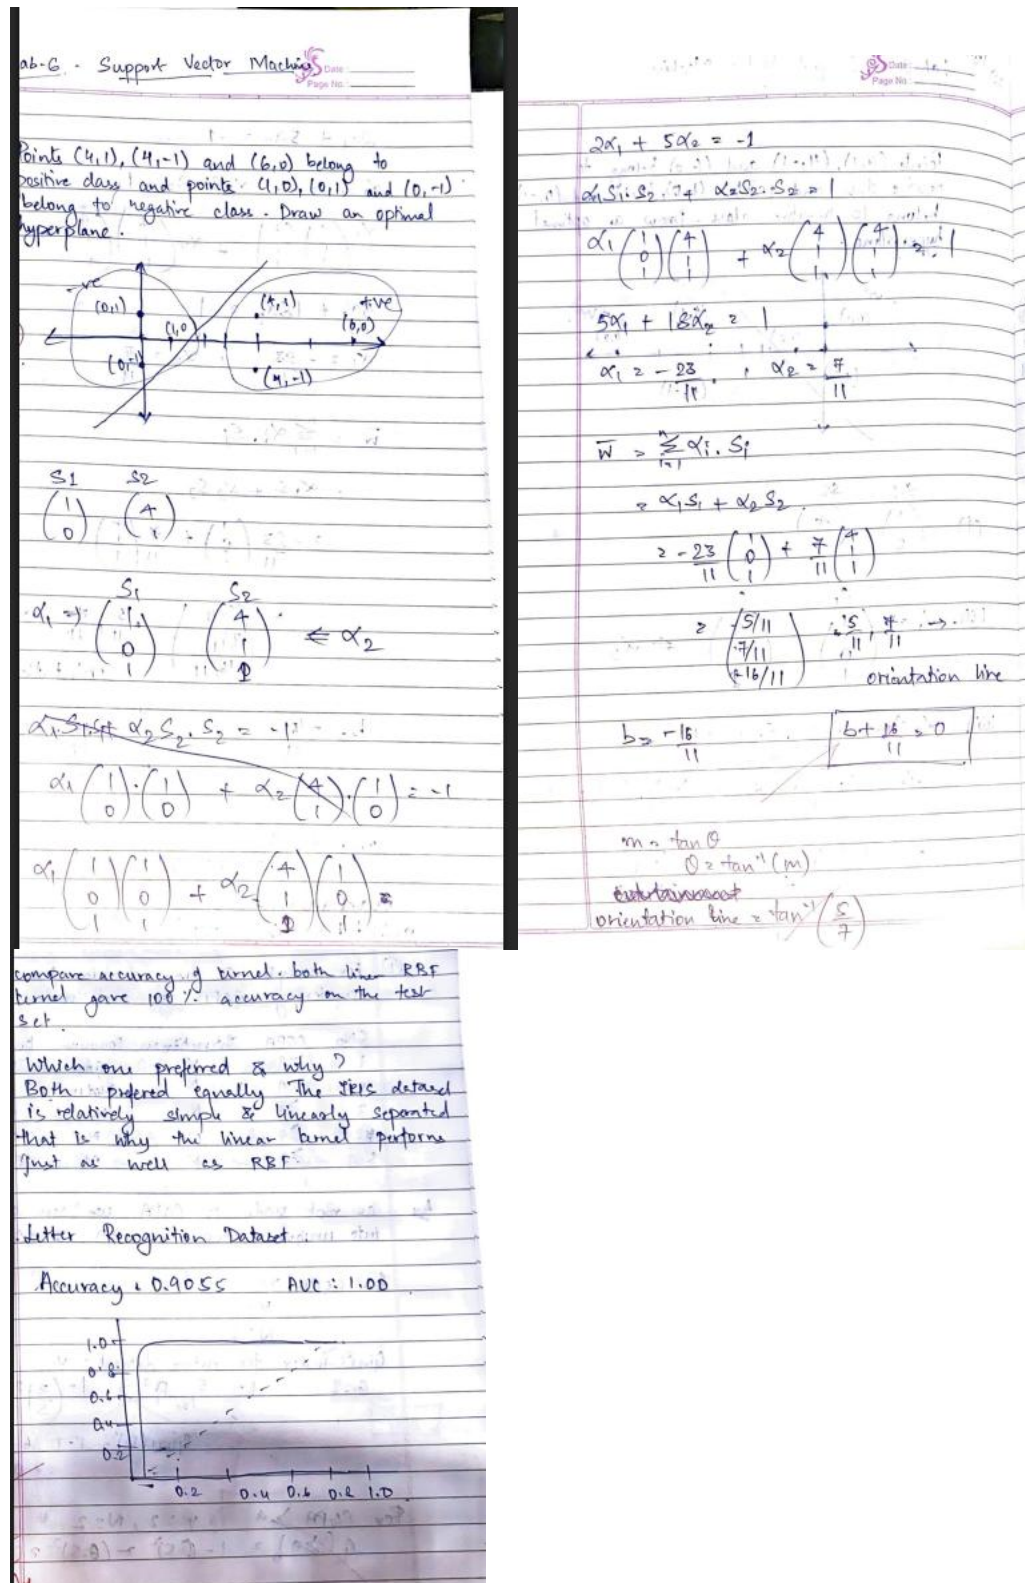 ab-6 - Support Vector Machine
Date
Page No.
Points (4,1), (4,-1) and (6,0) belong to
positive class and points (1,0), (0,1) and (0,-1)
belong to negative class. Draw an optimal
hyperplane.
-ve
+ve
(0,1)
(4,1)
(1,0
(6,0)
(0,-1)
(4,-1)
S1 S2
(1 0) (4 1)
S1 S2
α1 ⇒ (1 0 1) (4 1 1) ⇐ α2
α2 S2. S2 = -1
α1 (1 0).(1 0) + α2 (4 1).(1 0) = -1
α1 (1 0 1)(1 0 1) + α2 (4 1 1)(1 0 1) =
Date
Page No.
2α1 + 5α2 = -1
α1S1.S2 + α2S2.S2 = 1
α1 (1 0 1)(4 1 1) + α2 (4 1 1)(4 1 1) = 1
5α1 + 18α2 = 1
α1 = -23/11 , α2 = 7/11
W = Σ αi. Si
= α1S1 + α2S2
= -23/11 (1 0 1) + 7/11 (4 1 1)
= (5/11 7/11 -16/11) 5/11, 7/11 →
orientation line
b = -16/11
b + 16/11 = 0
m = tan θ
θ = tan⁻¹ (m)
orientation line = tan⁻¹ (5/7)
compare accuracy of kernel. both linear RBF
kernel gave 100% accuracy on the test
set.
Which one preferred & why?
Both prefered equally The IRIS dataset
is relatively simple & linearly separated
that is why the linear kernel performs
just as well as RBF
Letter Recognition Dataset.
Accuracy : 0.9055 AUC : 1.00
1.0
0.8
0.6
0.4
0.2
0.2 0.4 0.6 0.8 1.0